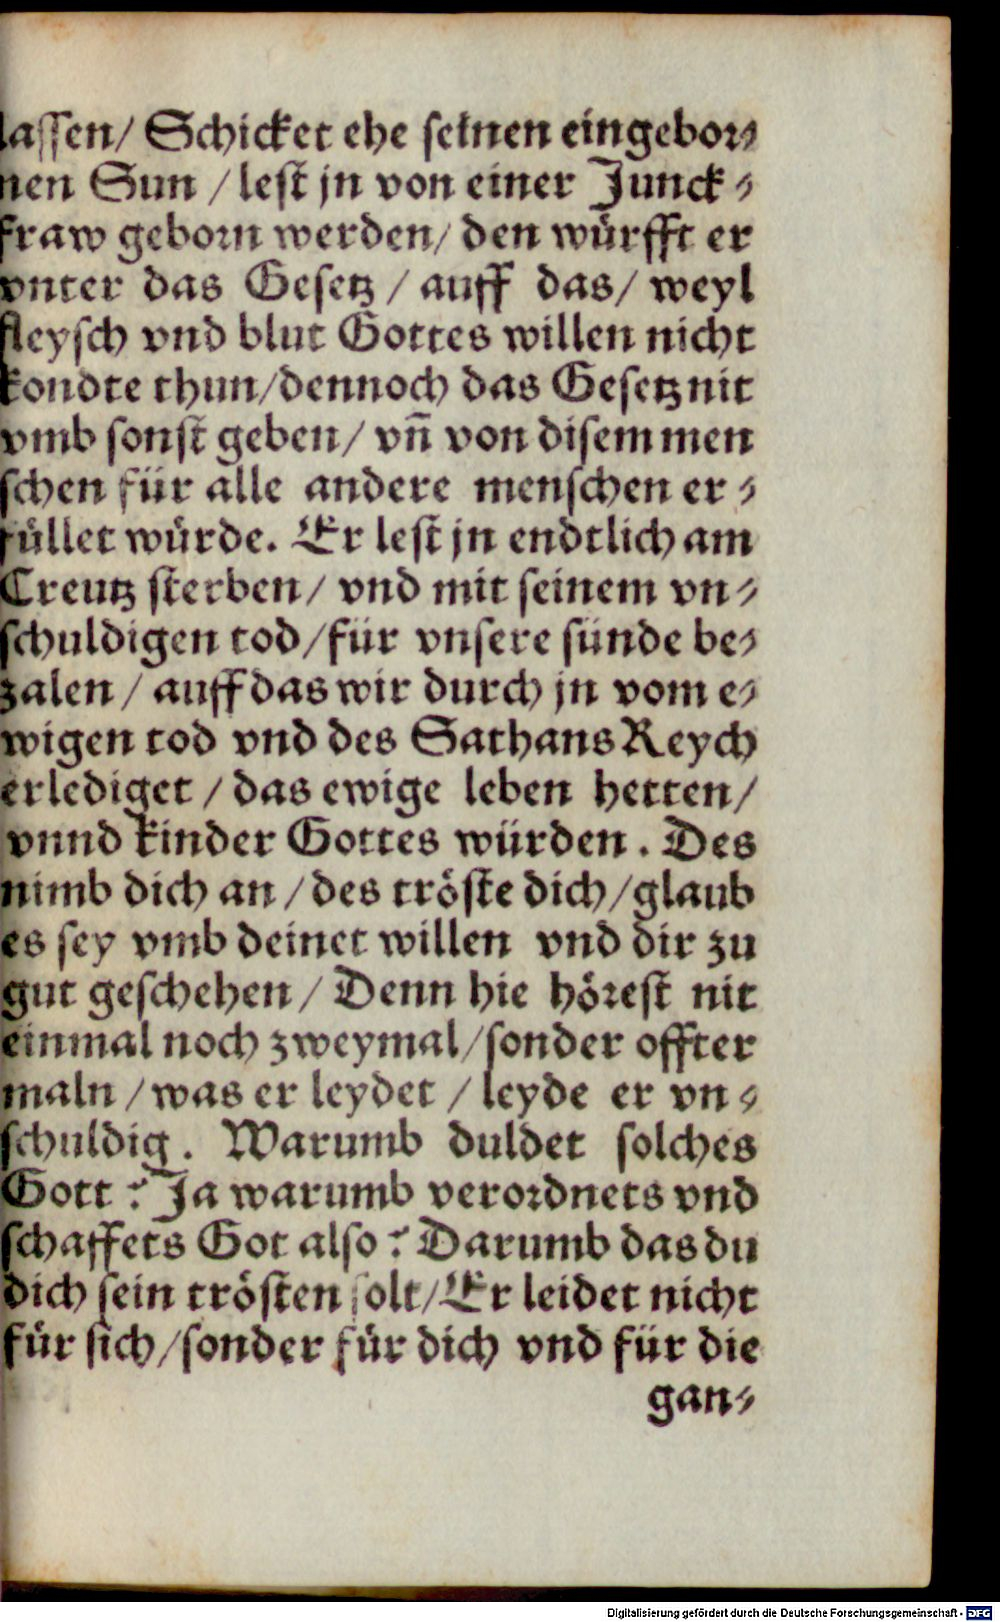 lassen/ Schicket ehe seinen eingebor⸗
nen Sun / lest jn von einer Junck⸗
fraw geborn werden/ den würfft er
vnter das Gesetz / auff das/ weyl
fleysch vnd blut Gottes willen nicht
kondte thun/dennoch das Gesetz nit
vmb sonst geben/ vn̄ von disem men
schen für alle andere menschen er⸗
füllet würde. Er lest jn endtlich am
Creutz sterben/ vnd mit seinem vn⸗
schuldigen tod/für vnsere sünde be⸗
zalen / auff das wir durch jn vom e⸗
wigen tod vnd des Sathans Reych
erlediget / das ewige leben hetten/
vnnd kinder Gottes würden. Des
nimb dich an / des tröste dich/glaub
es sey vmb deinet willen vnd dir zu
gut geschehen/ Denn hie hörest nit
einmal noch zweymal/sonder offter
maln / was er leydet / leyde er vn⸗
schuldig. Warumb duldet solches
Gott? Ja warumb verordnets vnd
schaffets Got also? Darumb das du
dich sein trösten solt/Er leidet nicht
für sich/sonder für dich vnd für die
gan⸗
Digitalisierung gefördert durch die Deutsche Forschungsgemeinschaft - DFG